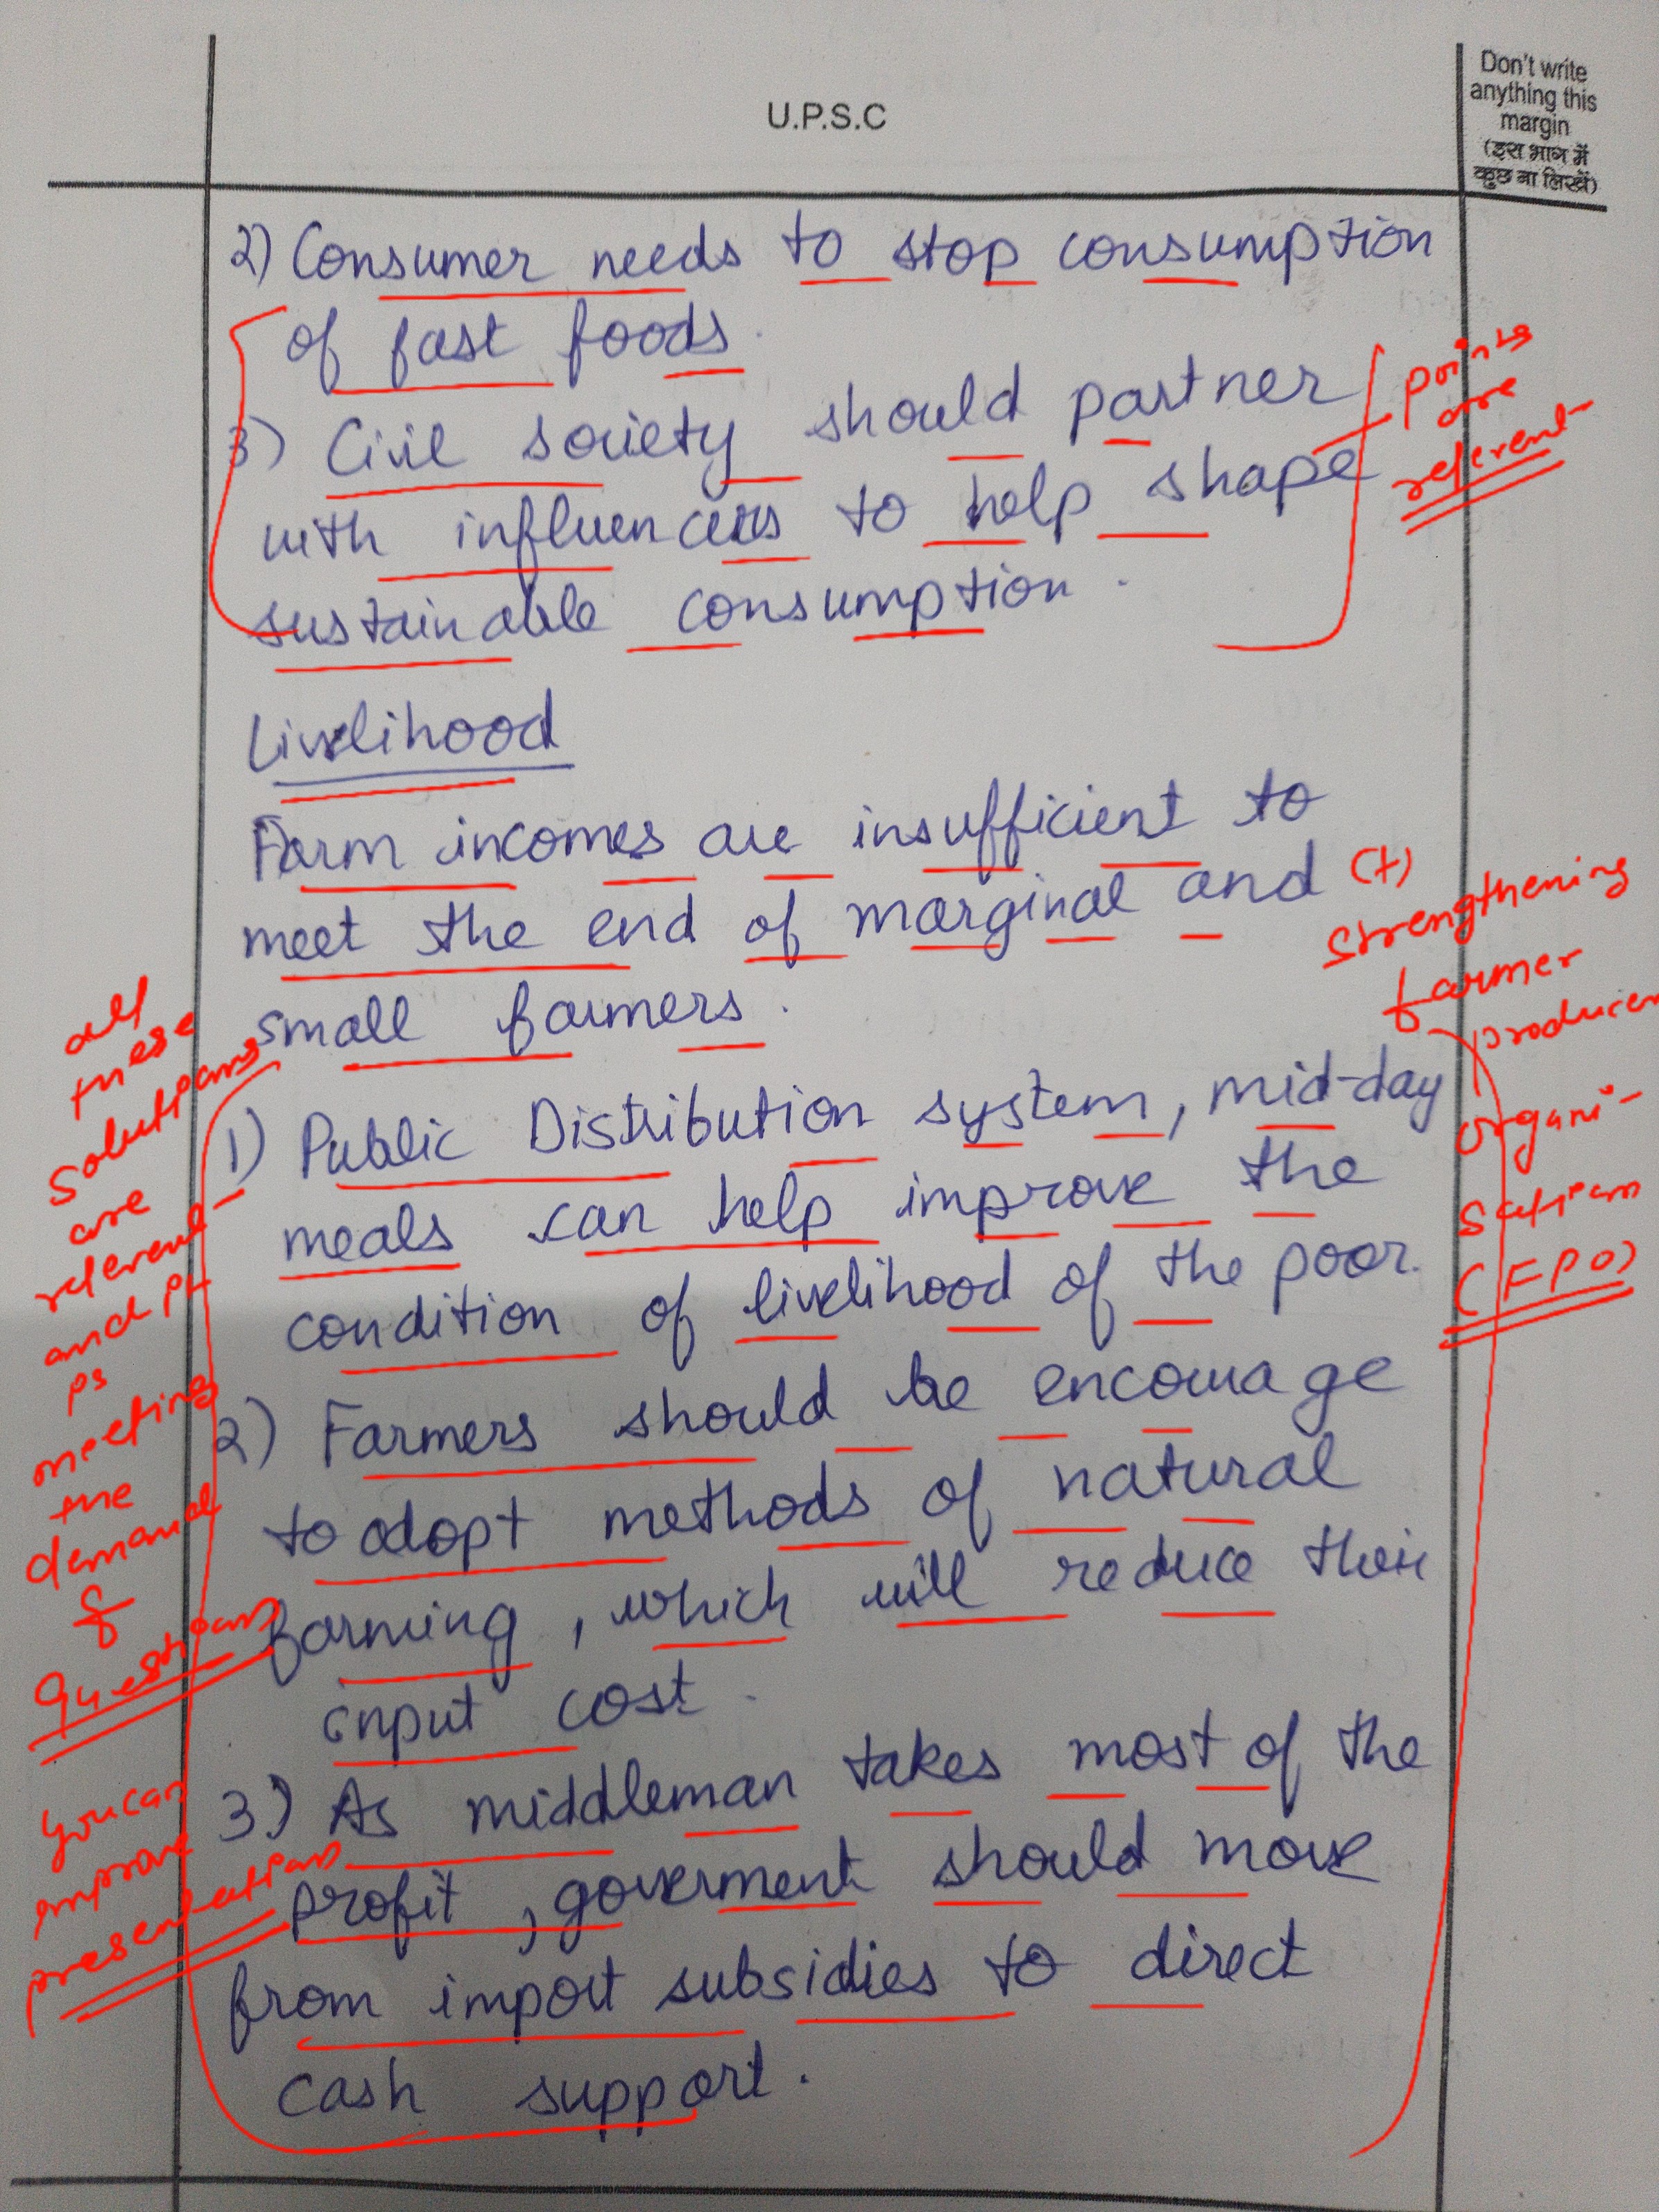 U.P.S.C
Don't write
anything this
margin
(इस भाग में
कुछ ना लिखें)
2) Consumer needs to stop consumption
of fast foods.
3) Civil society should partner
with influencers to help shape
sustainable consumption.
points
are
relevent
Livelihood
Farm incomes are insufficient to
meet the end of marginal and
small farmers.
(+)
strengthening
farmer
producer
organi-
sation
(FPO)
1) Public Distribution system, mid-day
meals can help improve the
condition of livelihood of the poor.
2) Farmers should be encourage
to adopt methods of natural
farming, which will reduce their
input cost.
3) As middleman takes most of the
profit, goverment should move
from import subsidies to direct
cash support.
all
these
solutions
are
relevent
and
meeting
the
demand
of
question
you can
improve
presentation